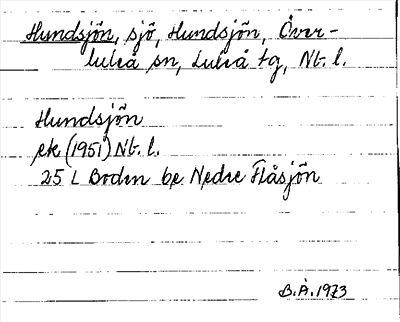 Hundsjön, sjö, Hundsjön, Över-
luleå sn, Luleå tg, Nt. l.
Hundsjön
ek (1951) Nt. l.
25 L Boden be Nedre Flåsjön
B.Å. 1973